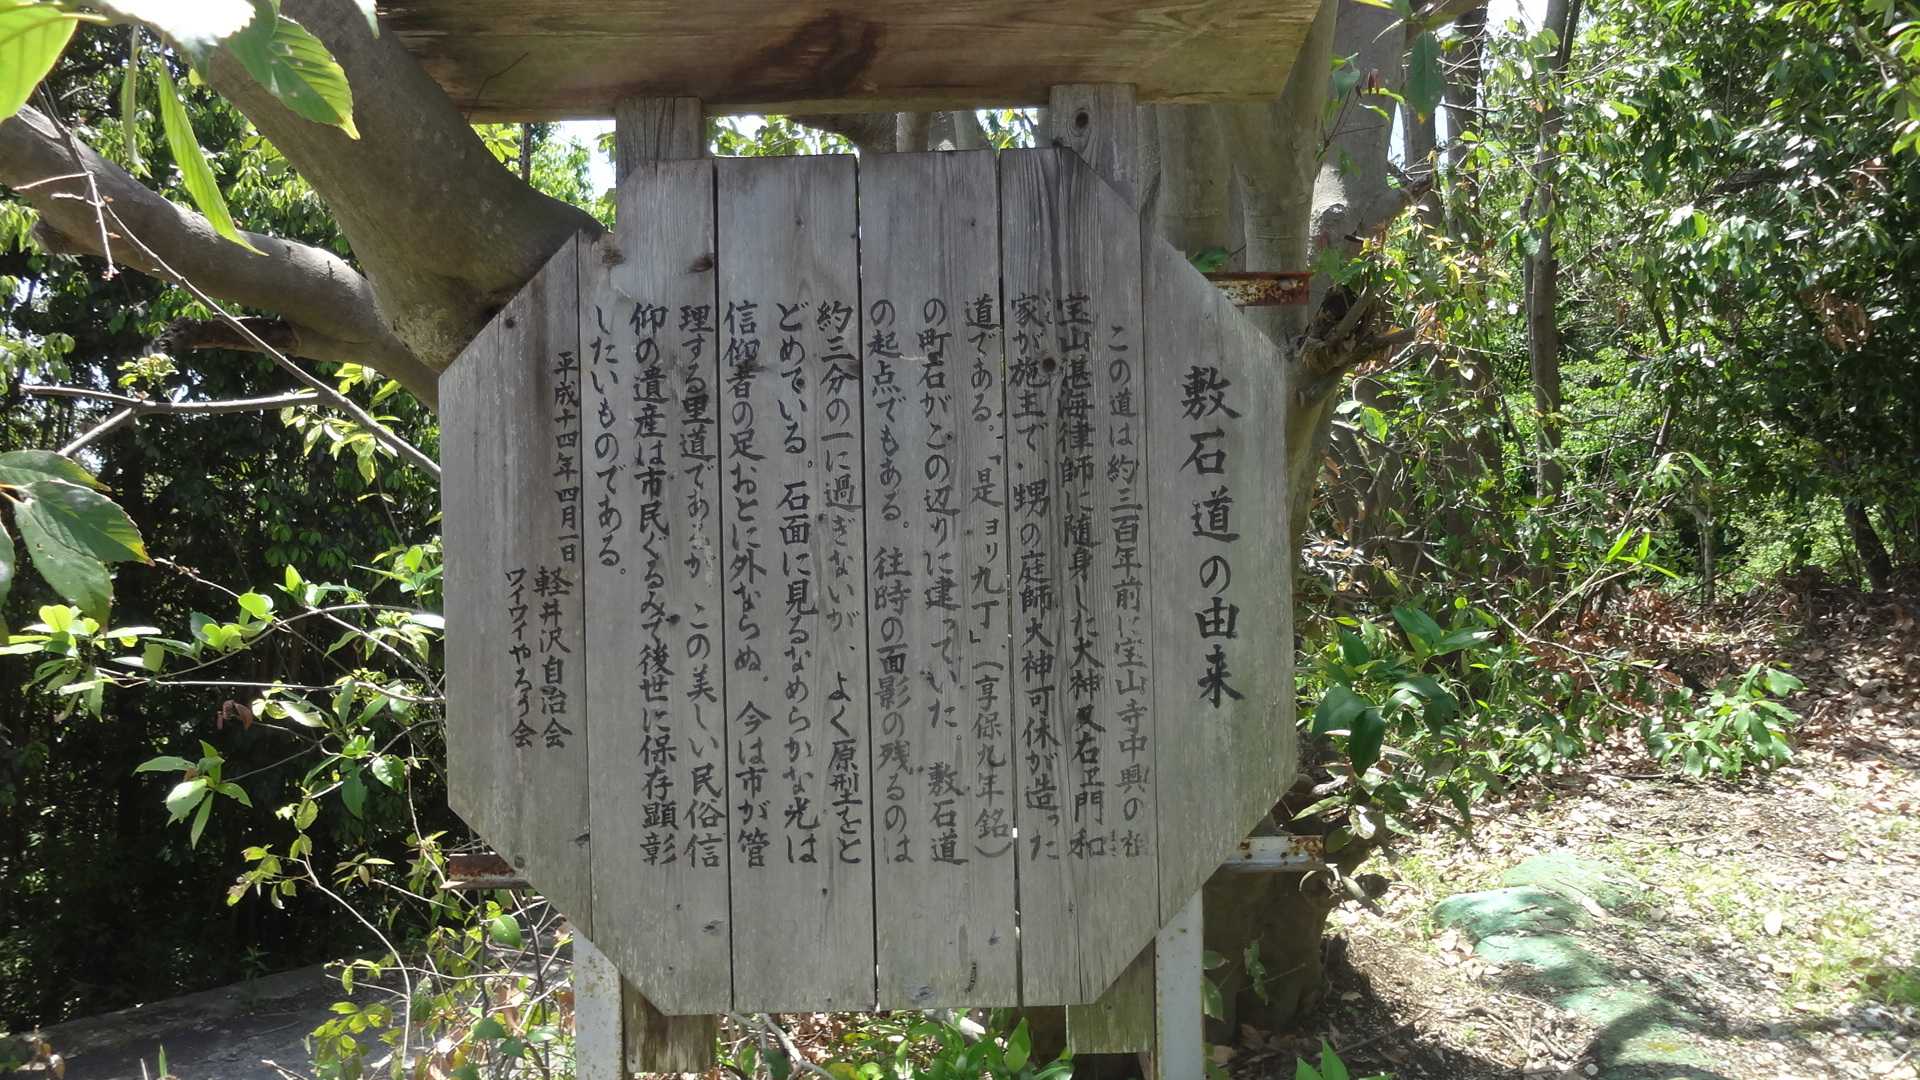 敷石道の由来
この道は約三百年前に宝山寺中興の祖
宝山湛海律師に随身した大神又右ヱ門和
家が施主で、甥の庭師大神可休が造った
道である。「是ヨリ九丁」(享保九年銘)
の町石がこの辺りに建っていた。敷石道
の起点でもある。往時の面影の残るのは
約三分の一に過ぎないが、よく原型をと
どめている。石面に見るなめらかな光は
信仰者の足おとに外ならぬ。今は市が管
理する里道であるが、この美しい民俗信
仰の遺産は市民ぐるみで後世に保存顕彰
したいものである。
平成十四年四月一日
軽井沢自治会
ワイワイやろう会